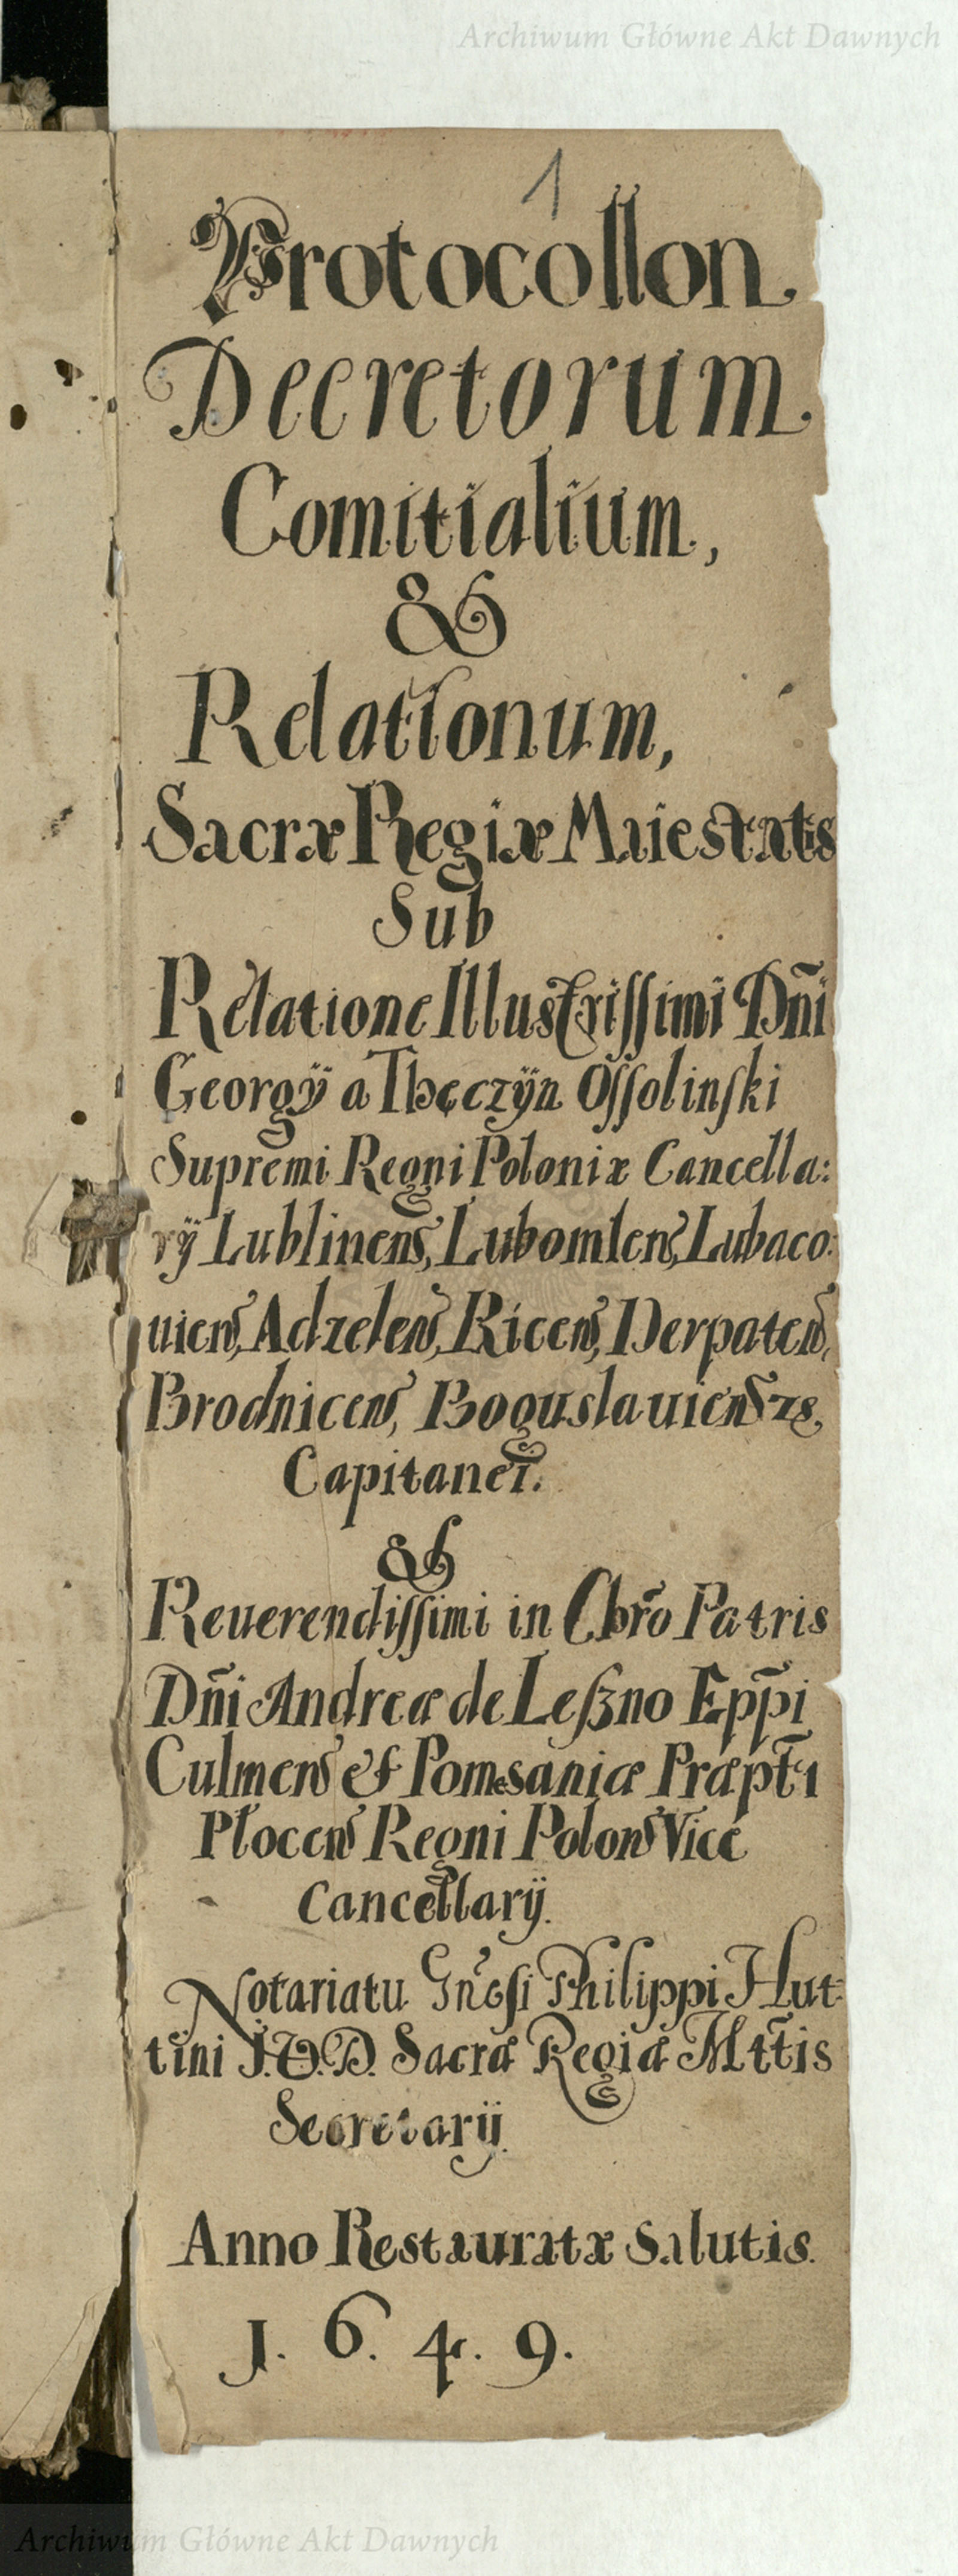 Archiwum Główne Akt Dawnych
1
Protocollon
Decretorum
Comitialium,
&
Relationum,
Sacræ Regiæ Maiestatis
Sub
Relatione Illustrissimi Dñi
Georgÿ a Thęczÿn Ossolinski
Supremi Regni Poloniæ Cancella:
rÿ Lublinens, Lubomlens, Lubaco:
uiens, Adzelens, Ricens, Derpatens,
Brodnicens, Boguslauiens
Capitanei.
&
Reuerendissimi in Chr̃o Patris
Dñi Andreæ de Leßno Epp̃i
Culmens & Pomesaniæ Præpt̃i
Płocens Regni Polons Vice
Cancellarÿ.
Notariatu Gñosi Philippi Hut-
tini J.V.D. Sacræ Regiæ Mtt̃is
Secretarÿ.
Anno Restauratæ Salutis.
J. 6. 4. 9.
Archiwum Główne Akt Dawnych